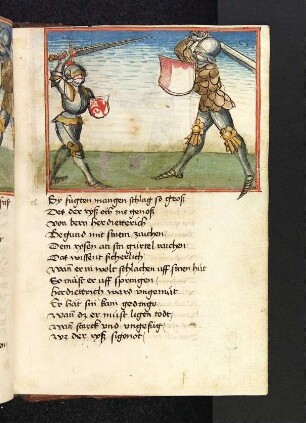 Sy fůgten mangen schlag so groß
Det der ryß och me genoß
Von bern her dietterich
Begund mit sinem zuchen
Dem rysen an sin gürtel raichen
Dat wissent sicherlich
Wan er in wolt schlachen uff sinen hůt
So můst er uff springen
Herdiettrich ward ungemůt
Er hat sin kain gedinge
Wan dz er můst ligen todt
Wan starck und ungefüg
Wz der ryß sigenot